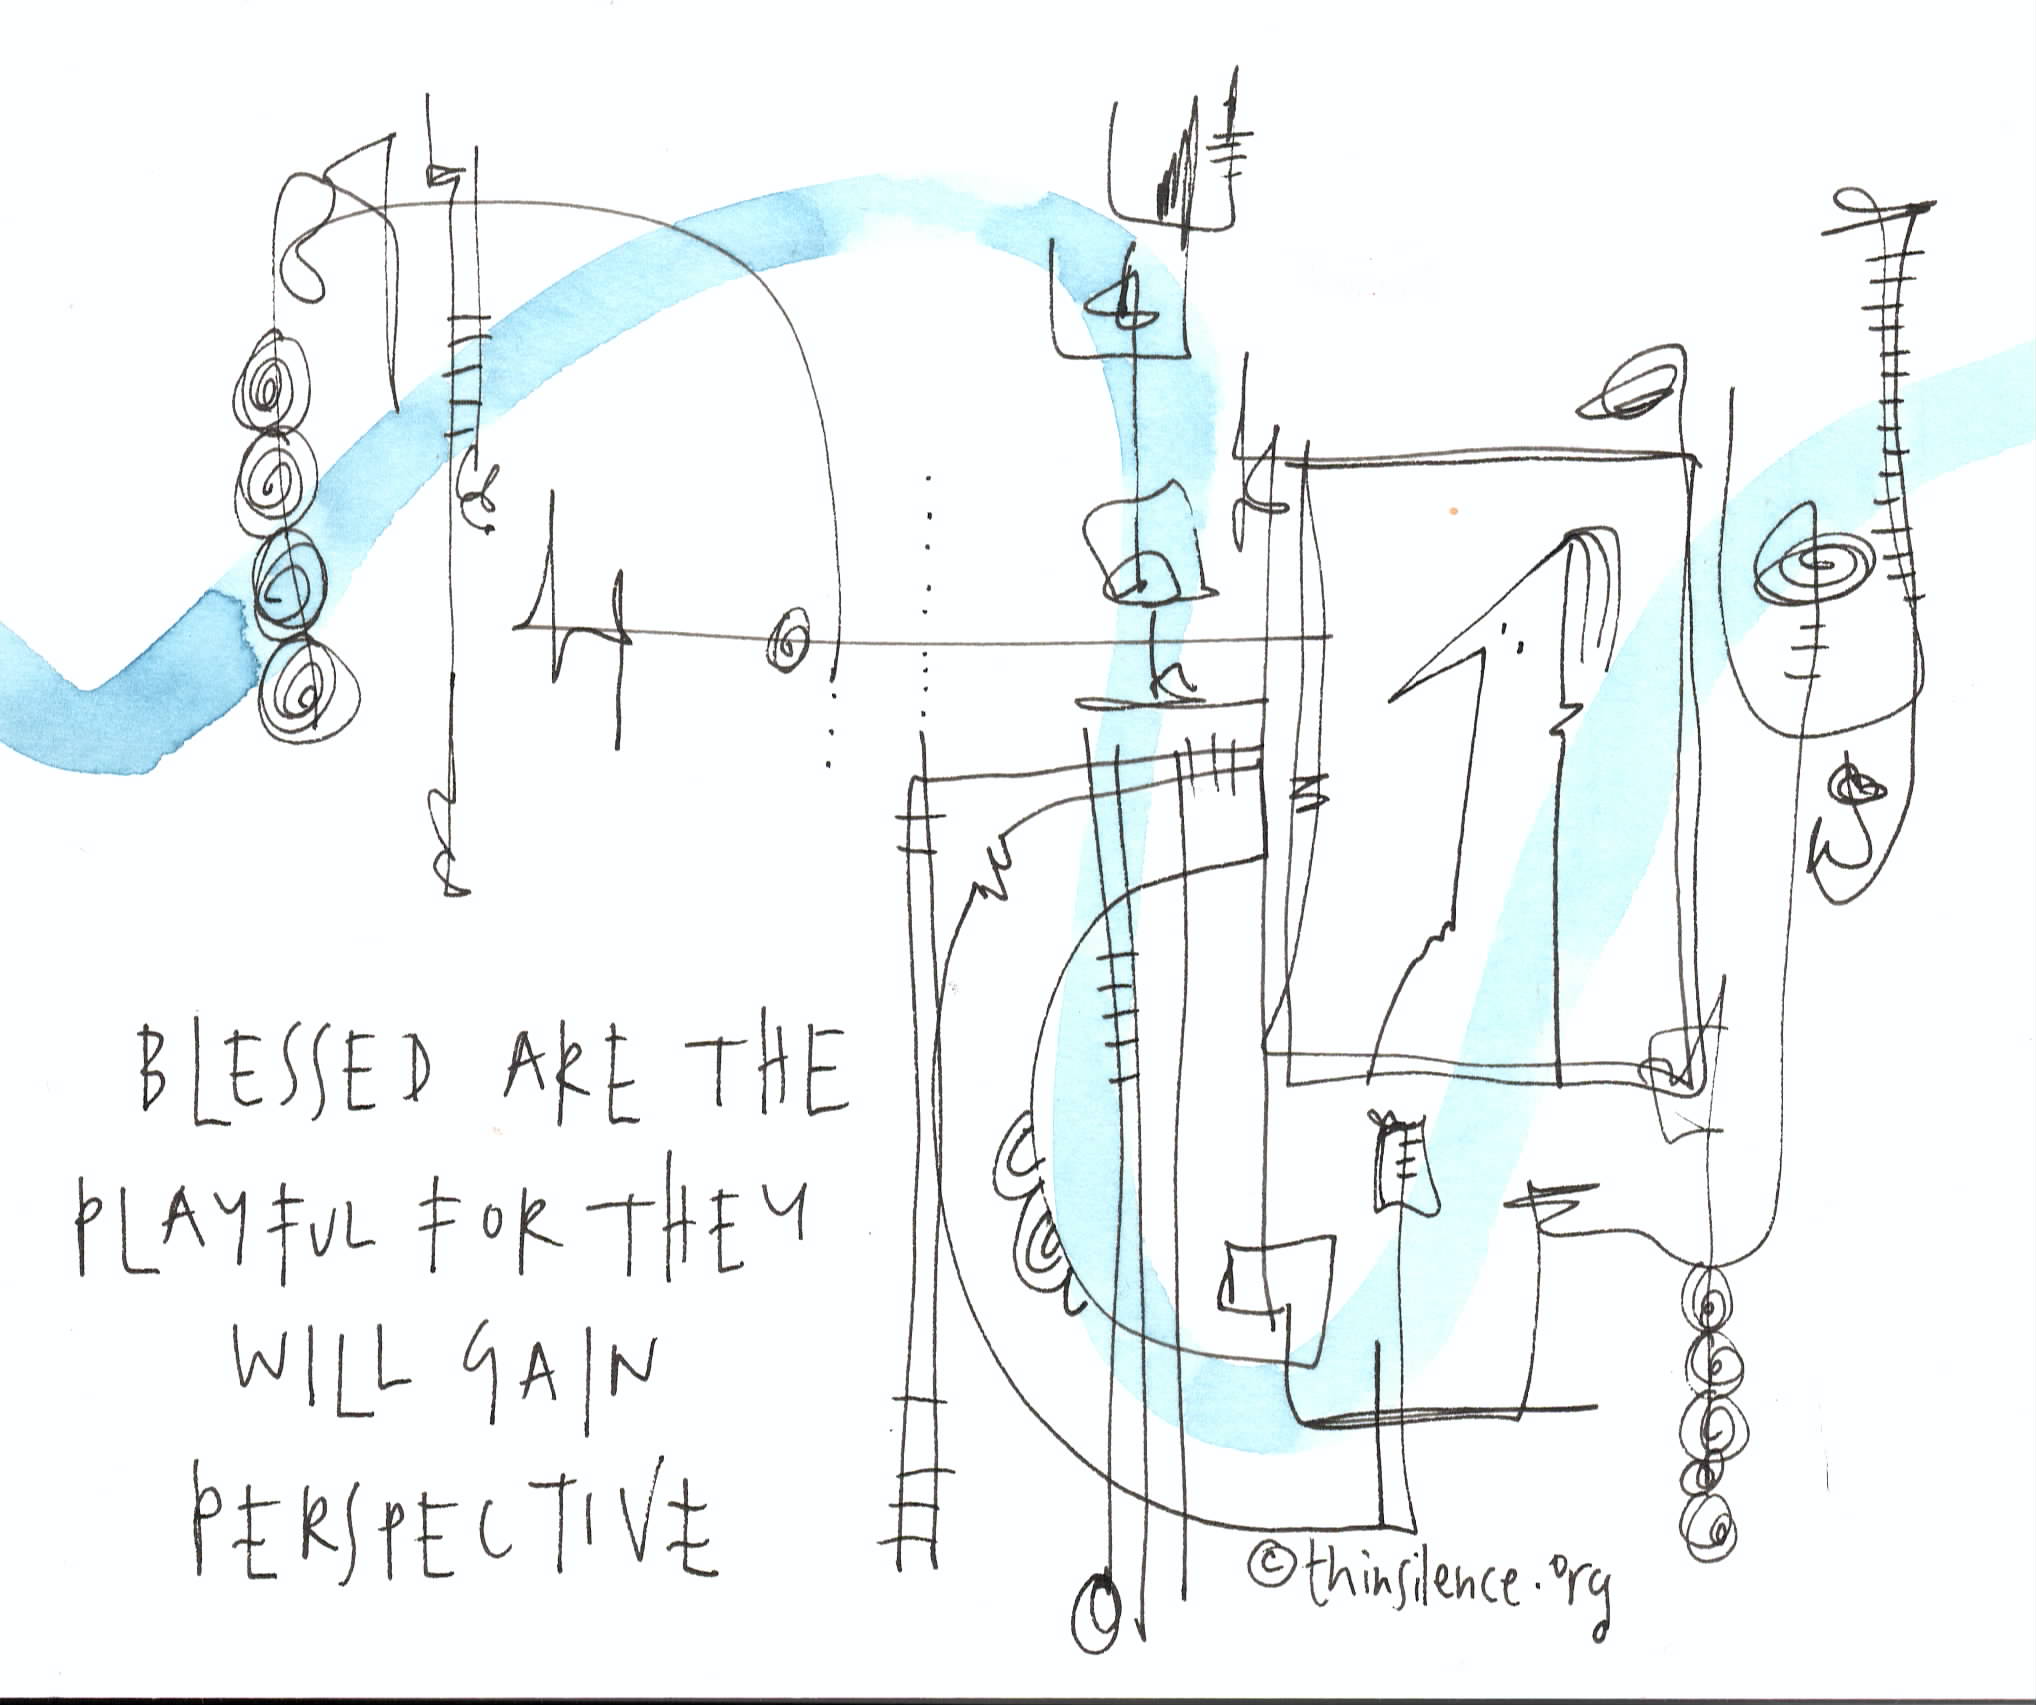 BLESSED ARE THE
PLAYFUL FOR THEY
WILL GAIN
PERSPECTIVE
©thinsilence.org